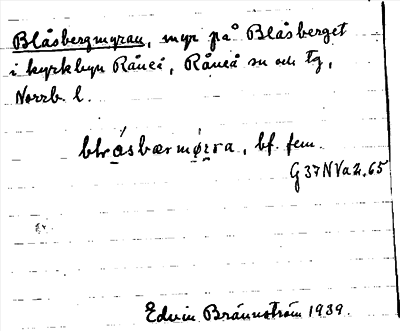 Blåsbergmyran, myr på Blåsberget
i kyrkbyn Råneå, Råneå sn och tg,
Norrb. l.
blråsbærmǿrra, bf. fem.
G37NVa2.65
Edvin Brännström 1939.